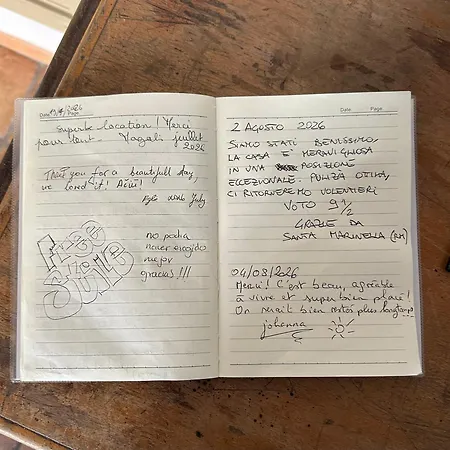 Date 19/7/2026 Page
Superbe location ! Merci
pour tout - Magali juillet
2026
Thank you for a beautifull day,
we loved it! Aciü!
July
Free
Smile
no podia
haver escogido
mejor
gracias !!!
Date Page
2 AGOSTO 2026
SIAMO STATI BENISSIMO,
LA CASA E' MERAVIGLIOSA
IN UNA POSIZIONE
ECCEZIONALE. PULIZIA OTTIMA,
CI RITORNEREMO VOLENTIERI
VOTO 9 1/2
GRAZIE DA
SANTA MARINELLA (RM)
04/08/2026
Merci ! C'est beau, agréable
à vivre et super bien placé !
On serait bien restés plus longtemps
johanna